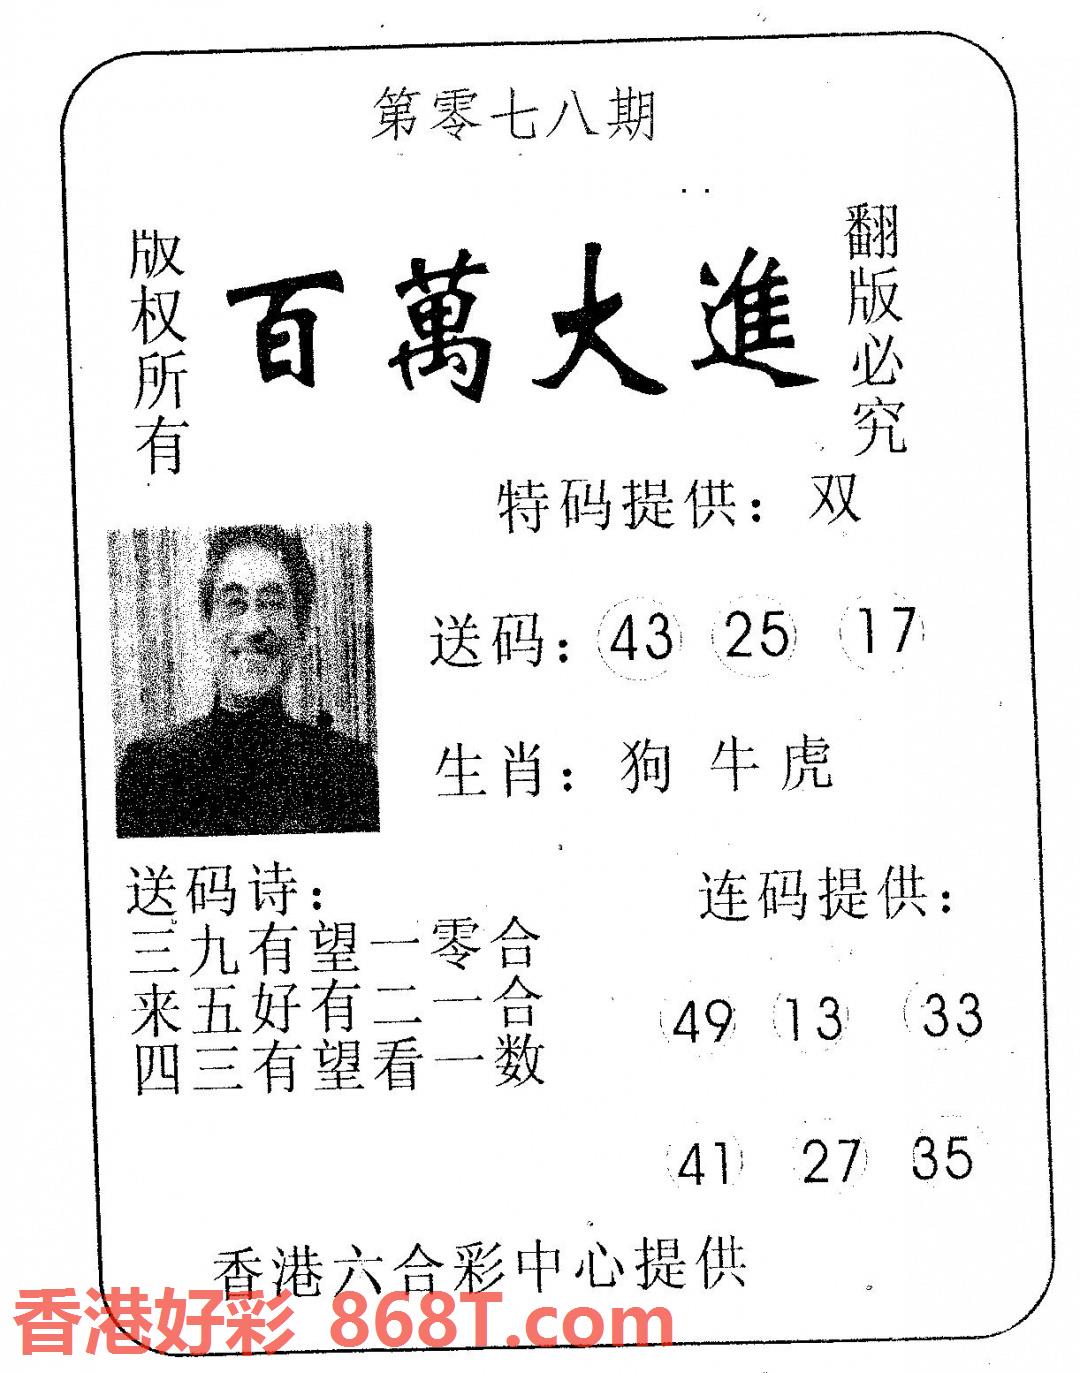 第零七八期
版权所有
百萬大進
翻版必究
特码提供：双
送码：43 25 17
生肖：狗 牛 虎
送码诗：
三九有望一零合
来五好有二一合
四三有望看一数
连码提供：
49 13 33
41 27 35
香港六合彩中心提供
香港好彩 868T.com